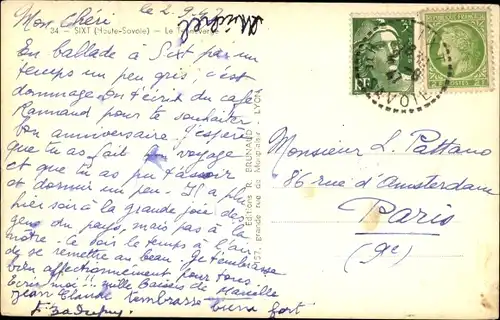 le 2.9.47
Mon Chéri
34 - SIXT (Haute-Savoie) - Le
En ballade à Sixt par un
temps un peu gris, c'est
dommage. On t'écrit du café
Rannaud pour te souhaiter
bon anniversaire. J'espère
que tu as fait le voyage
et que tu as pu t'assoir
et dormir un peu. Il a plu
hier soir à la grande joie des
gens du pays, mais pas à la
nôtre. Ce soir le temps à l'air
de se remettre au beau. Je t'embrasse
bien affectionnement pour tous
Ecris moi!! mille Baisers de
Jean Claude t'embrasse bien fort
Editions R. BRUNAND
157, grande rue de - LYON
SAVOIE
Monsieur L. Pattano
86 rue d'Amsterdam
Paris
(9e)